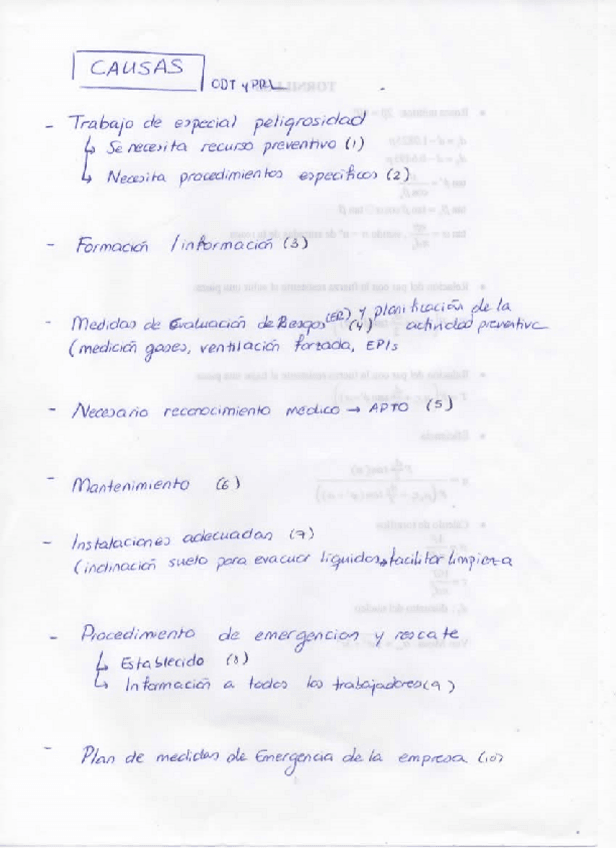 CAUSAS
ODT y PRL
- Trabajo de especial peligrosidad
↳ Se necesita recurso preventivo (1)
↳ Necesita procedimientos especificos (2)
- Formación / información (3)
- Medidas de Evaluación de Riesgos (ER) (4) y planificación de la actividad preventiva
(medición gases, ventilación forzada, EPIs
- Necesario reconocimiento médico → APTO (5)
- Mantenimiento (6)
- Instalaciones adecuadas (7)
(inclinación suelo para evacuar liquidos, facilitar limpieza
- Procedimiento de emergencion y rescate
↳ Establecido (8)
↳ Información a todos los trabajadores (9)
- Plan de medidas de Emergencia de la empresa (10)